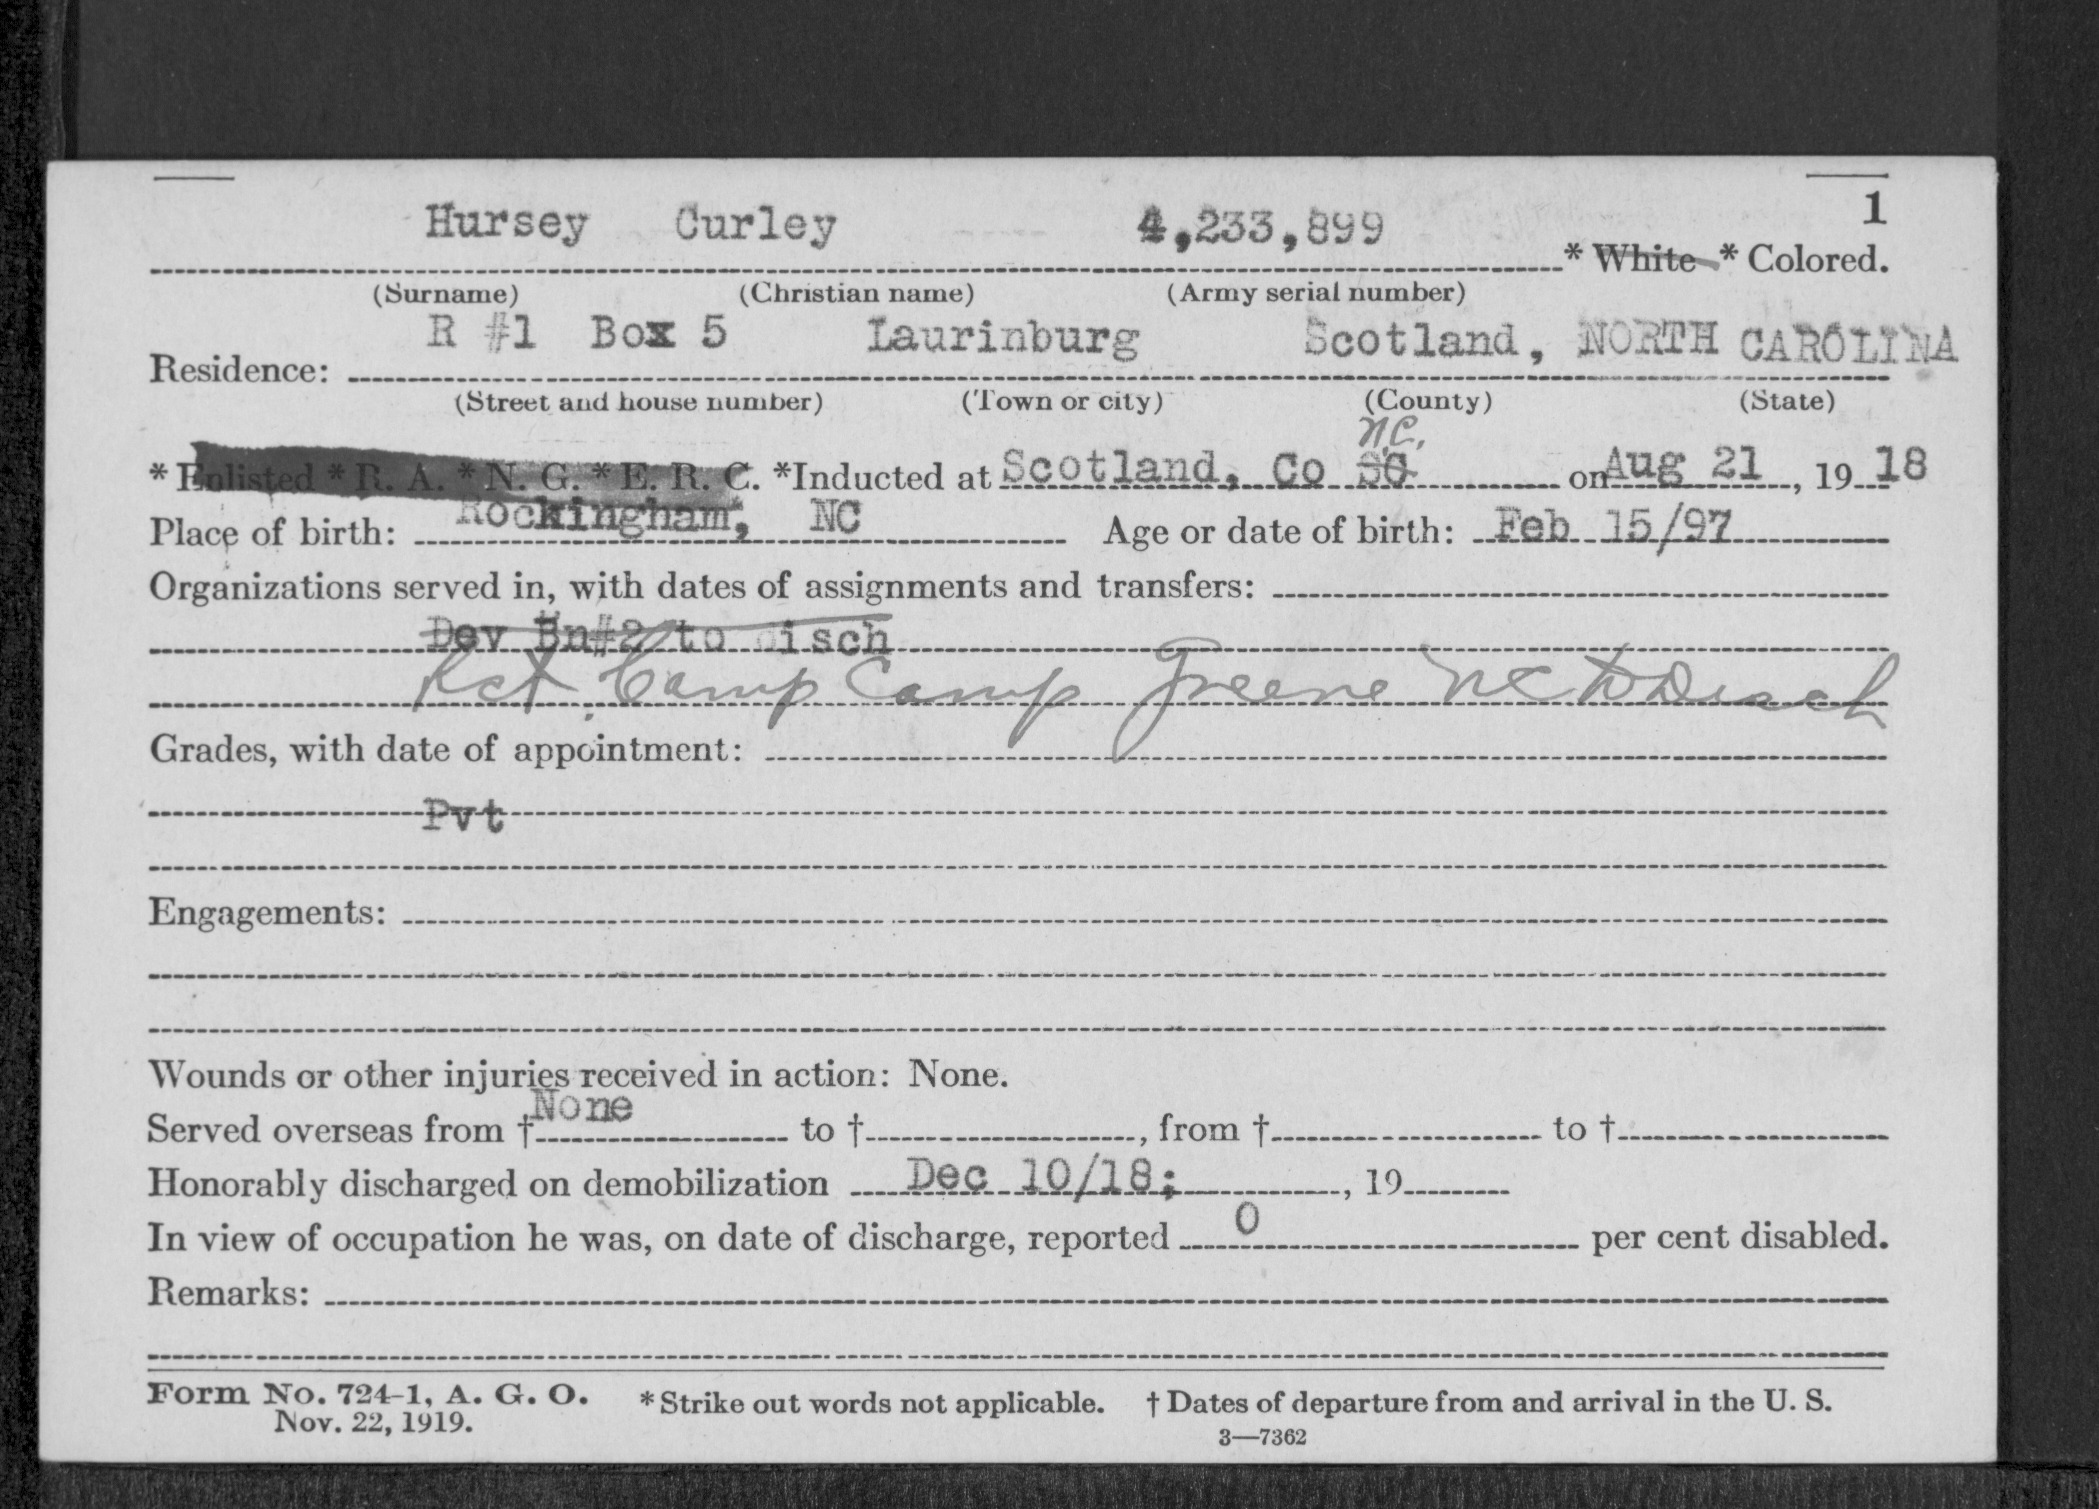 1
Hursey Curley 4,233,899 * White * Colored.
(Surname) (Christian name) (Army serial number)
R #1 Box 5 Laurinburg Scotland, NORTH CAROLINA
Residence:
(Street and house number) (Town or city) (County) (State)
N.C.
* Enlisted * R. A. * N. G. * E. R. C. *Inducted at Scotland, Co SC on Aug 21, 19 18
Place of birth: Rockingham, NC Age or date of birth: Feb 15/97
Organizations served in, with dates of assignments and transfers:
Dev Bn#2 to disch
Rct Camp Camp Greene NC to Disch
Grades, with date of appointment:
Pvt
Engagements:
Wounds or other injuries received in action: None.
Served overseas from † None to †, from † to †
Honorably discharged on demobilization Dec 10/18; , 19
In view of occupation he was, on date of discharge, reported 0 per cent disabled.
Remarks:
Form No. 724-1, A. G. O. * Strike out words not applicable. † Dates of departure from and arrival in the U. S.
Nov. 22, 1919.
3—7362